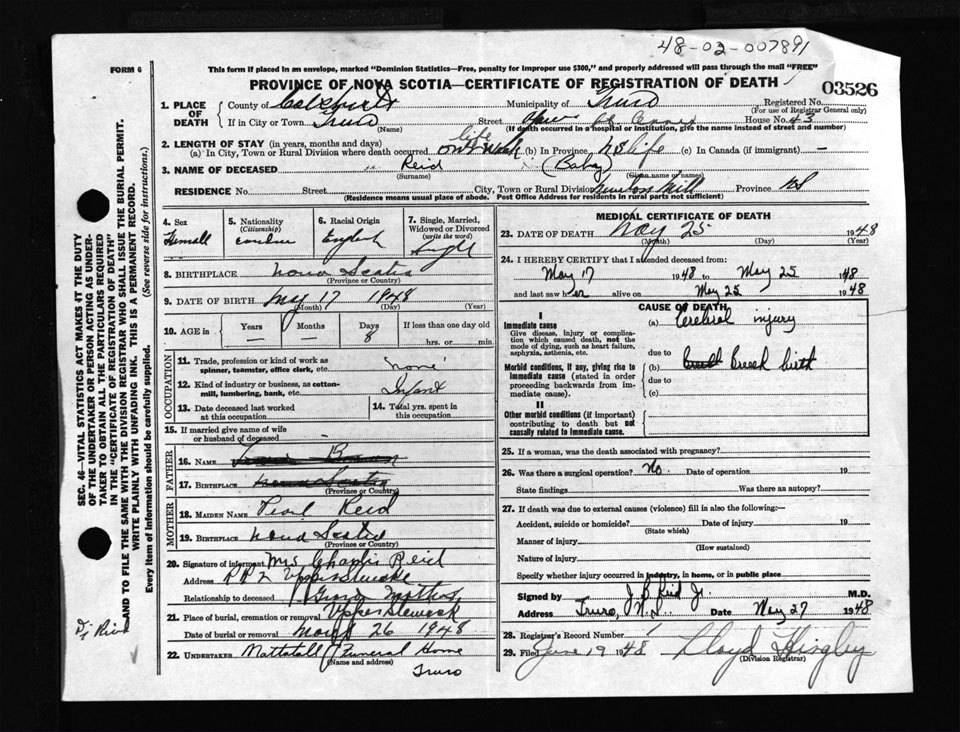 48-02-007891
FORM 6
This form if placed in an envelope, marked "Dominion Statistics—Free, penalty for improper use $300," and properly addressed will pass through the mail "FREE"
PROVINCE OF NOVA SCOTIA—CERTIFICATE OF REGISTRATION OF DEATH
03526
1. PLACE OF DEATH
County of Colchester Municipality of Truro Registered No.
(For use of Registrar General only)
If in City or Town Truro Street House No. 43
(Name) (If death occurred in a hospital or institution, give the name instead of street and number)
2. LENGTH OF STAY (in years, months and days)
(a) In City, Town or Rural Division where death occurred life (b) In Province NS life (c) In Canada (if immigrant) –
3. NAME OF DECEASED Reid (Baby)
(Surname) (Given name or names)
RESIDENCE No. Street City, Town or Rural Division Mill Province NS
(Residence means usual place of abode. Post Office Address for residents in rural parts not sufficient)
4. Sex
Femall
5. Nationality
(Citizenship)
6. Racial Origin
English
7. Single, Married, Widowed or Divorced
(write the word)
Single
8. BIRTHPLACE Nova Scotia
(Province or Country)
9. DATE OF BIRTH May 17 1948
(Month) (Day) (Year)
10. AGE in
Years Months Days If less than one day old
— — 8 hrs. or min.
OCCUPATION
11. Trade, profession or kind of work as spinner, teamster, office clerk, etc. none
12. Kind of industry or business, as cotton-mill, lumbering, bank, etc. Infant
13. Date deceased last worked at this occupation
14. Total yrs. spent in this occupation
15. If married give name of wife or husband of deceased –
FATHER
16. NAME
17. BIRTHPLACE Nova Scotia
(Province or Country)
MOTHER
18. MAIDEN NAME Pearl Reid
19. BIRTHPLACE Nova Scotia
(Province or Country)
20. Signature of informant Mrs Charlie Reid
Address RR2 Upper Stewiacke
Relationship to deceased Grand Mother
21. Place of burial, cremation or removal Upper Stewiack
Date of burial or removal May 26 1948
22. UNDERTAKER Mattatall Funeral Home
(Name and address)
Truro
MEDICAL CERTIFICATE OF DEATH
23. DATE OF DEATH May 25 1948
(Month) (Day) (Year)
24. I HEREBY CERTIFY that I attended deceased from:
May 17 1948 to May 25 1948
and last saw her alive on May 25 1948
CAUSE OF DEATH
I
Immediate cause
Give disease, injury or complication which caused death, not the mode of dying, such as heart failure, asphyxia, asthenia, etc.
(a) Cerebral injury
due to
Morbid conditions, if any, giving rise to immediate cause (stated in order proceeding backwards from immediate cause).
(b) Breech birth
due to
(c)
II
Other morbid conditions (if important) contributing to death but not causally related to immediate cause.
25. If a woman, was the death associated with pregnancy?
26. Was there a surgical operation? No. Date of operation 19
State findings Was there an autopsy?
27. If death was due to external causes (violence) fill in also the following:—
Accident, suicide or homicide? Date of injury 19
(State which)
Manner of injury
(How sustained)
Nature of injury
Specify whether injury occurred in industry, in home, or in public place
Signed by J. B. Reid Jr. M.D.
Address Truro, N.S. Date May 27 1948
28. Registrar's Record Number
29. Filed June 19 1948 Lloyd Hingley
(Division Registrar)
SEC. 46—VITAL STATISTICS ACT MAKES IT THE DUTY OF THE UNDERTAKER OR PERSON ACTING AS UNDERTAKER TO OBTAIN ALL THE PARTICULARS REQUIRED IN THE "CERTIFICATE OF REGISTRATION OF DEATH" AND TO FILE THE SAME WITH THE DIVISION REGISTRAR WHO SHALL ISSUE THE BURIAL PERMIT.
WRITE PLAINLY WITH UNFADING INK. THIS IS A PERMANENT RECORD.
Every item of Information should be carefully supplied. (See reverse side for instructions.)